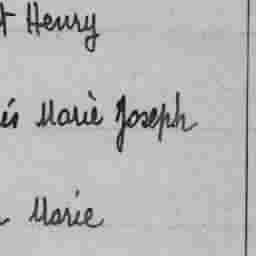 t Henry
is Marie Joseph
Marie